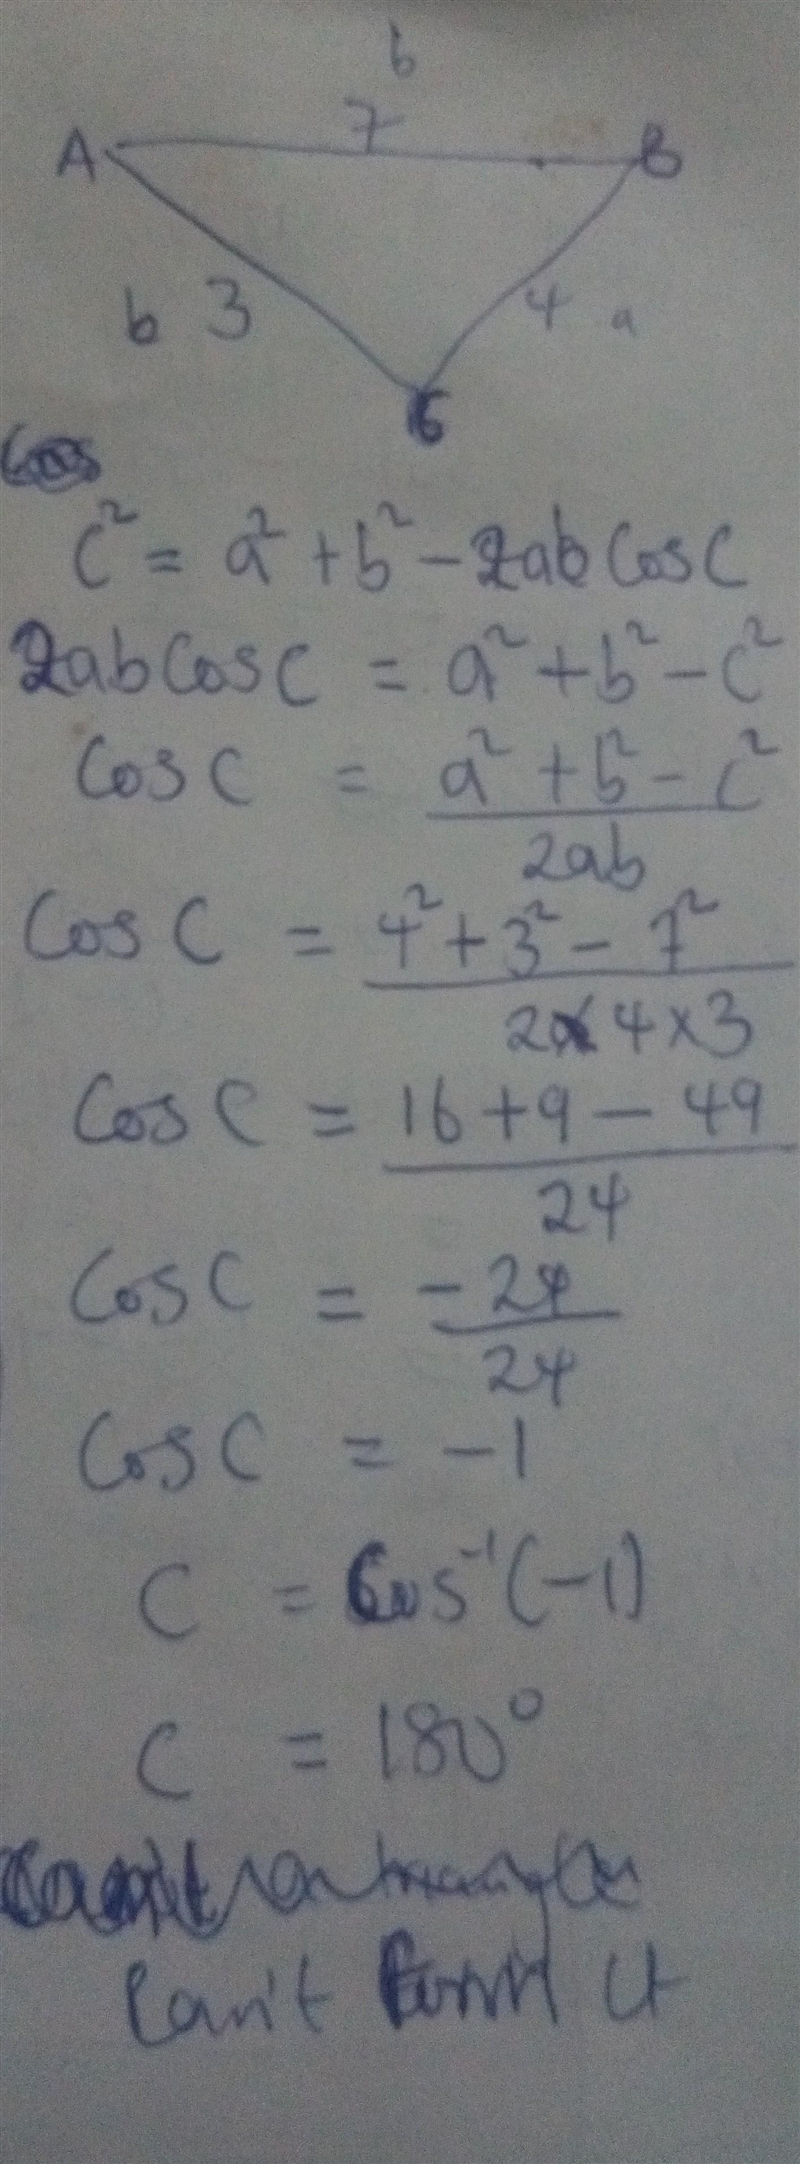 b
A 7 B
b 3 4 a
C
Cos
c² = a² + b² - 2ab Cos C
2ab Cos C = a² + b² - c²
Cos C = a² + b² - c² / 2ab
Cos C = 4² + 3² - 7² / 2x4x3
Cos C = 16 + 9 - 49 / 24
Cos C = -24 / 24
Cos C = -1
C = Cos⁻¹(-1)
C = 180°
Can't form it